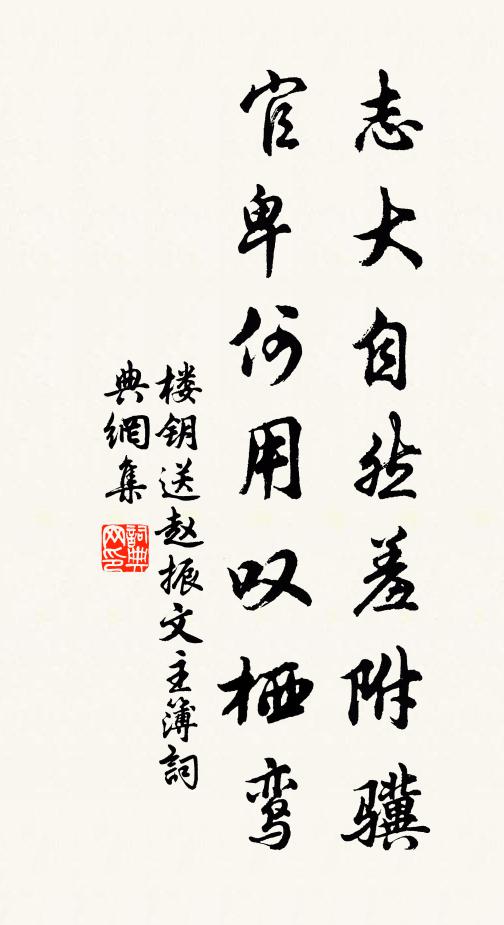 志大自然羞附骥
官卑何用叹栖鸾
楼钥送赵振文主簿詞
典網集
詞典
网印